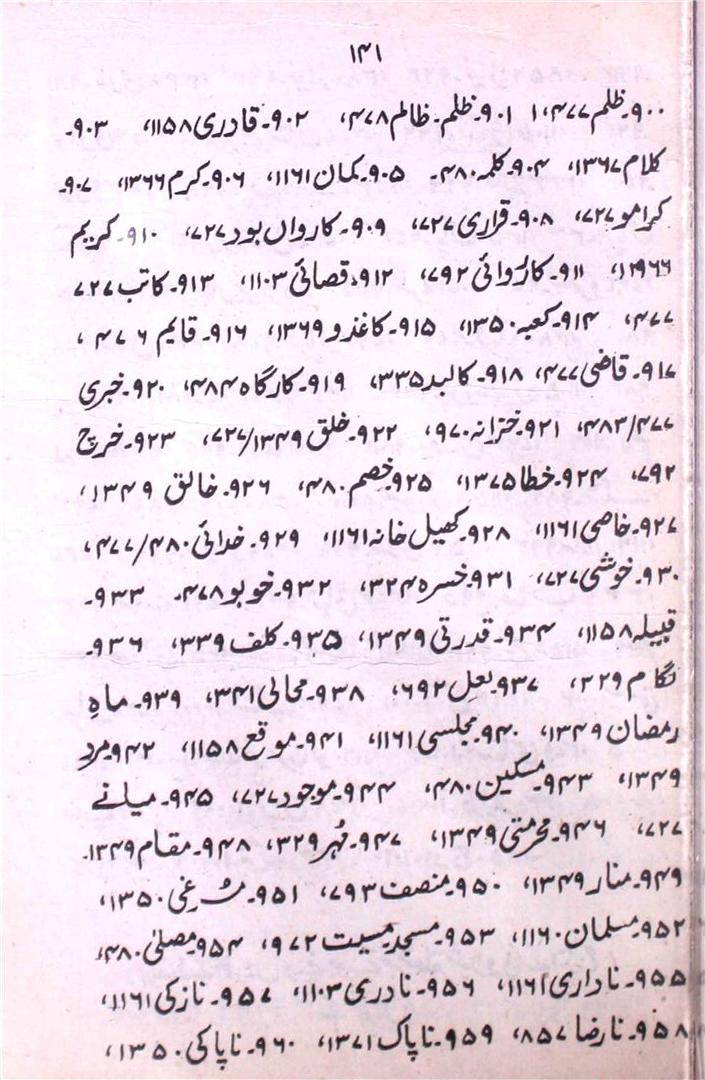 ۱۴۱
۹۰۰۔ظلم۴۷۷، ۹۰۱۔ظلم۔ظالم۴۷۸، ۹۰۲۔قادری۱۱۵۸، ۹۰۳۔
کلام۱۳۶۷، ۹۰۴۔کلمہ۴۸۰۔ ۹۰۵۔کمان۱۱۶۱، ۹۰۶۔کرم۱۳۶۶، ۹۰۷۔
کرامو۷۲۷، ۹۰۸۔قراری۷۲۷، ۹۰۹۔کارواں بود۷۲۷، ۹۱۰۔کریم
۱۲۹۶۶، ۹۱۱۔کاروائی۷۹۲، ۹۱۲۔قصائی۱۱۰۳، ۹۱۳۔کاتب۷۲۷
۴۷۷، ۹۱۴۔کعبہ۱۳۵۰، ۹۱۵۔کاغذو۱۳۶۹، ۹۱۶۔قایم۴۷۶،
۹۱۷۔قاضی۴۷۷، ۹۱۸۔کالبد۳۳۵، ۹۱۹۔کارگاہ۴۸۴، ۹۲۰۔خبری
۴۸۲/۴۷۷، ۹۲۱۔خزانہ۹۷۰، ۹۲۲۔خلق۷۲۷/۱۳۴۹، ۹۲۳۔خرچ
۷۹۲، ۹۲۴۔خطا۱۳۷۵، ۹۲۵۔خصم۴۸۰، ۹۲۶۔خالق ۱۳۴۹،
۹۲۷۔خاصی۱۱۶۱، ۹۲۸۔کھیل خانہ۱۱۶۱، ۹۲۹۔خدائی۴۷۷/۴۸۰،
۹۳۰۔خوشی۷۲۷، ۹۳۱۔خسرہ۳۲۴، ۹۳۲۔خوبو۴۷۸۔ ۹۳۳۔
قبیلہ۱۱۵۸، ۹۳۴۔قدرتی۱۳۴۹، ۹۳۵۔کلف۳۳۹، ۹۳۶۔
لگام۳۲۹، ۹۳۷۔لعل۶۹۲، ۹۳۸۔محالی۳۴۱، ۹۳۹۔ماہِ
رمضان۱۳۴۹، ۹۴۰۔مجلسی۱۱۶۱، ۹۴۱۔موقع۱۱۵۸، ۹۴۲۔مرد
۱۳۴۹، ۹۴۳۔مسکین۴۸۰، ۹۴۴۔موجود۷۲۷، ۹۴۵۔میانے
۷۲۷، ۹۴۶۔محرمتی۱۳۴۹، ۹۴۷۔مُہر۳۲۹، ۹۴۸۔مقام۱۳۴۹۔
۹۴۹۔منار۱۳۴۹، ۹۵۰۔منصف۷۹۳، ۹۵۱۔مُرغی۱۳۵۰،
۹۵۲۔مسلمان۱۱۶۰، ۹۵۳۔مسجد۔مسیت۹۷۲، ۹۵۴۔مصلیٰ۴۸۰،
۹۵۵۔ناداری۱۱۶۱، ۹۵۶۔نادری۱۱۰۳، ۹۵۷۔نازکی۱۱۶۱،
۹۵۸۔نارضا۸۵۷، ۹۵۹۔ناپاک۱۳۷۱، ۹۶۰۔ناپاکی۱۳۵۰،